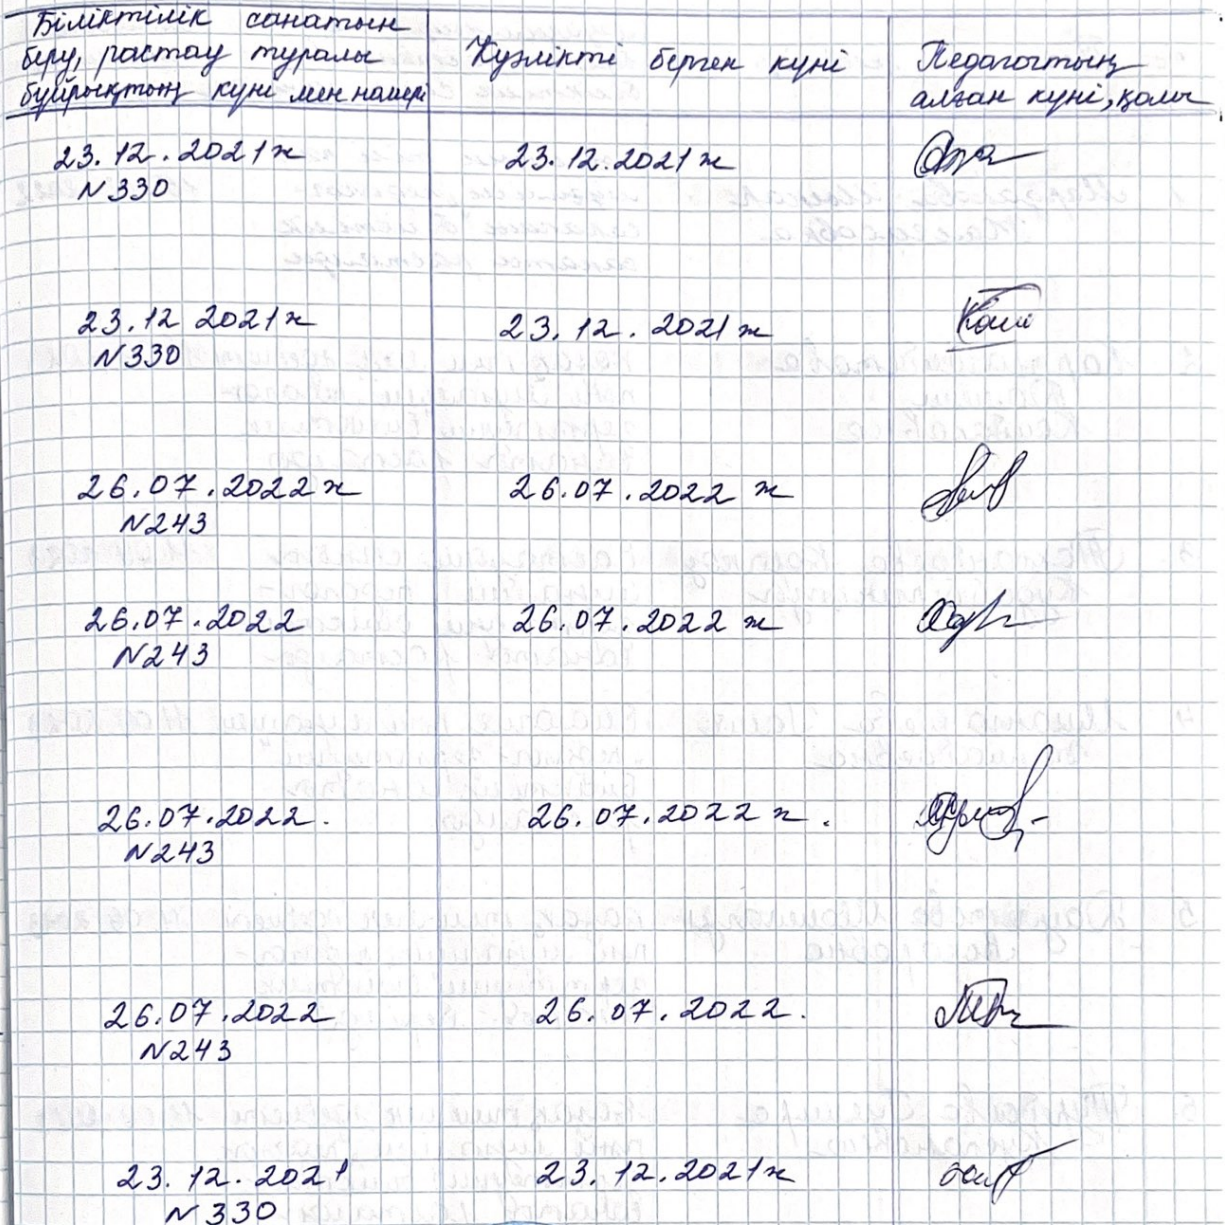 Біліктілік санатын
беру, растау туралы
бұйрықтың күні мен нөмері
Куәлікті берген күні
Педагогтың
алған күні, қолы
23.12.2021ж 23.12.2021ж
N330
23.12 2021ж 23.12.2021ж
N330
26.07.2022ж 26.07.2022 ж
N243
26.07.2022 26.07.2022 ж
N243
26.07.2022. 26.07.2022 ж.
N243
26.07.2022 26.07.2022.
N243
23.12.2021 23.12.2021ж
N330